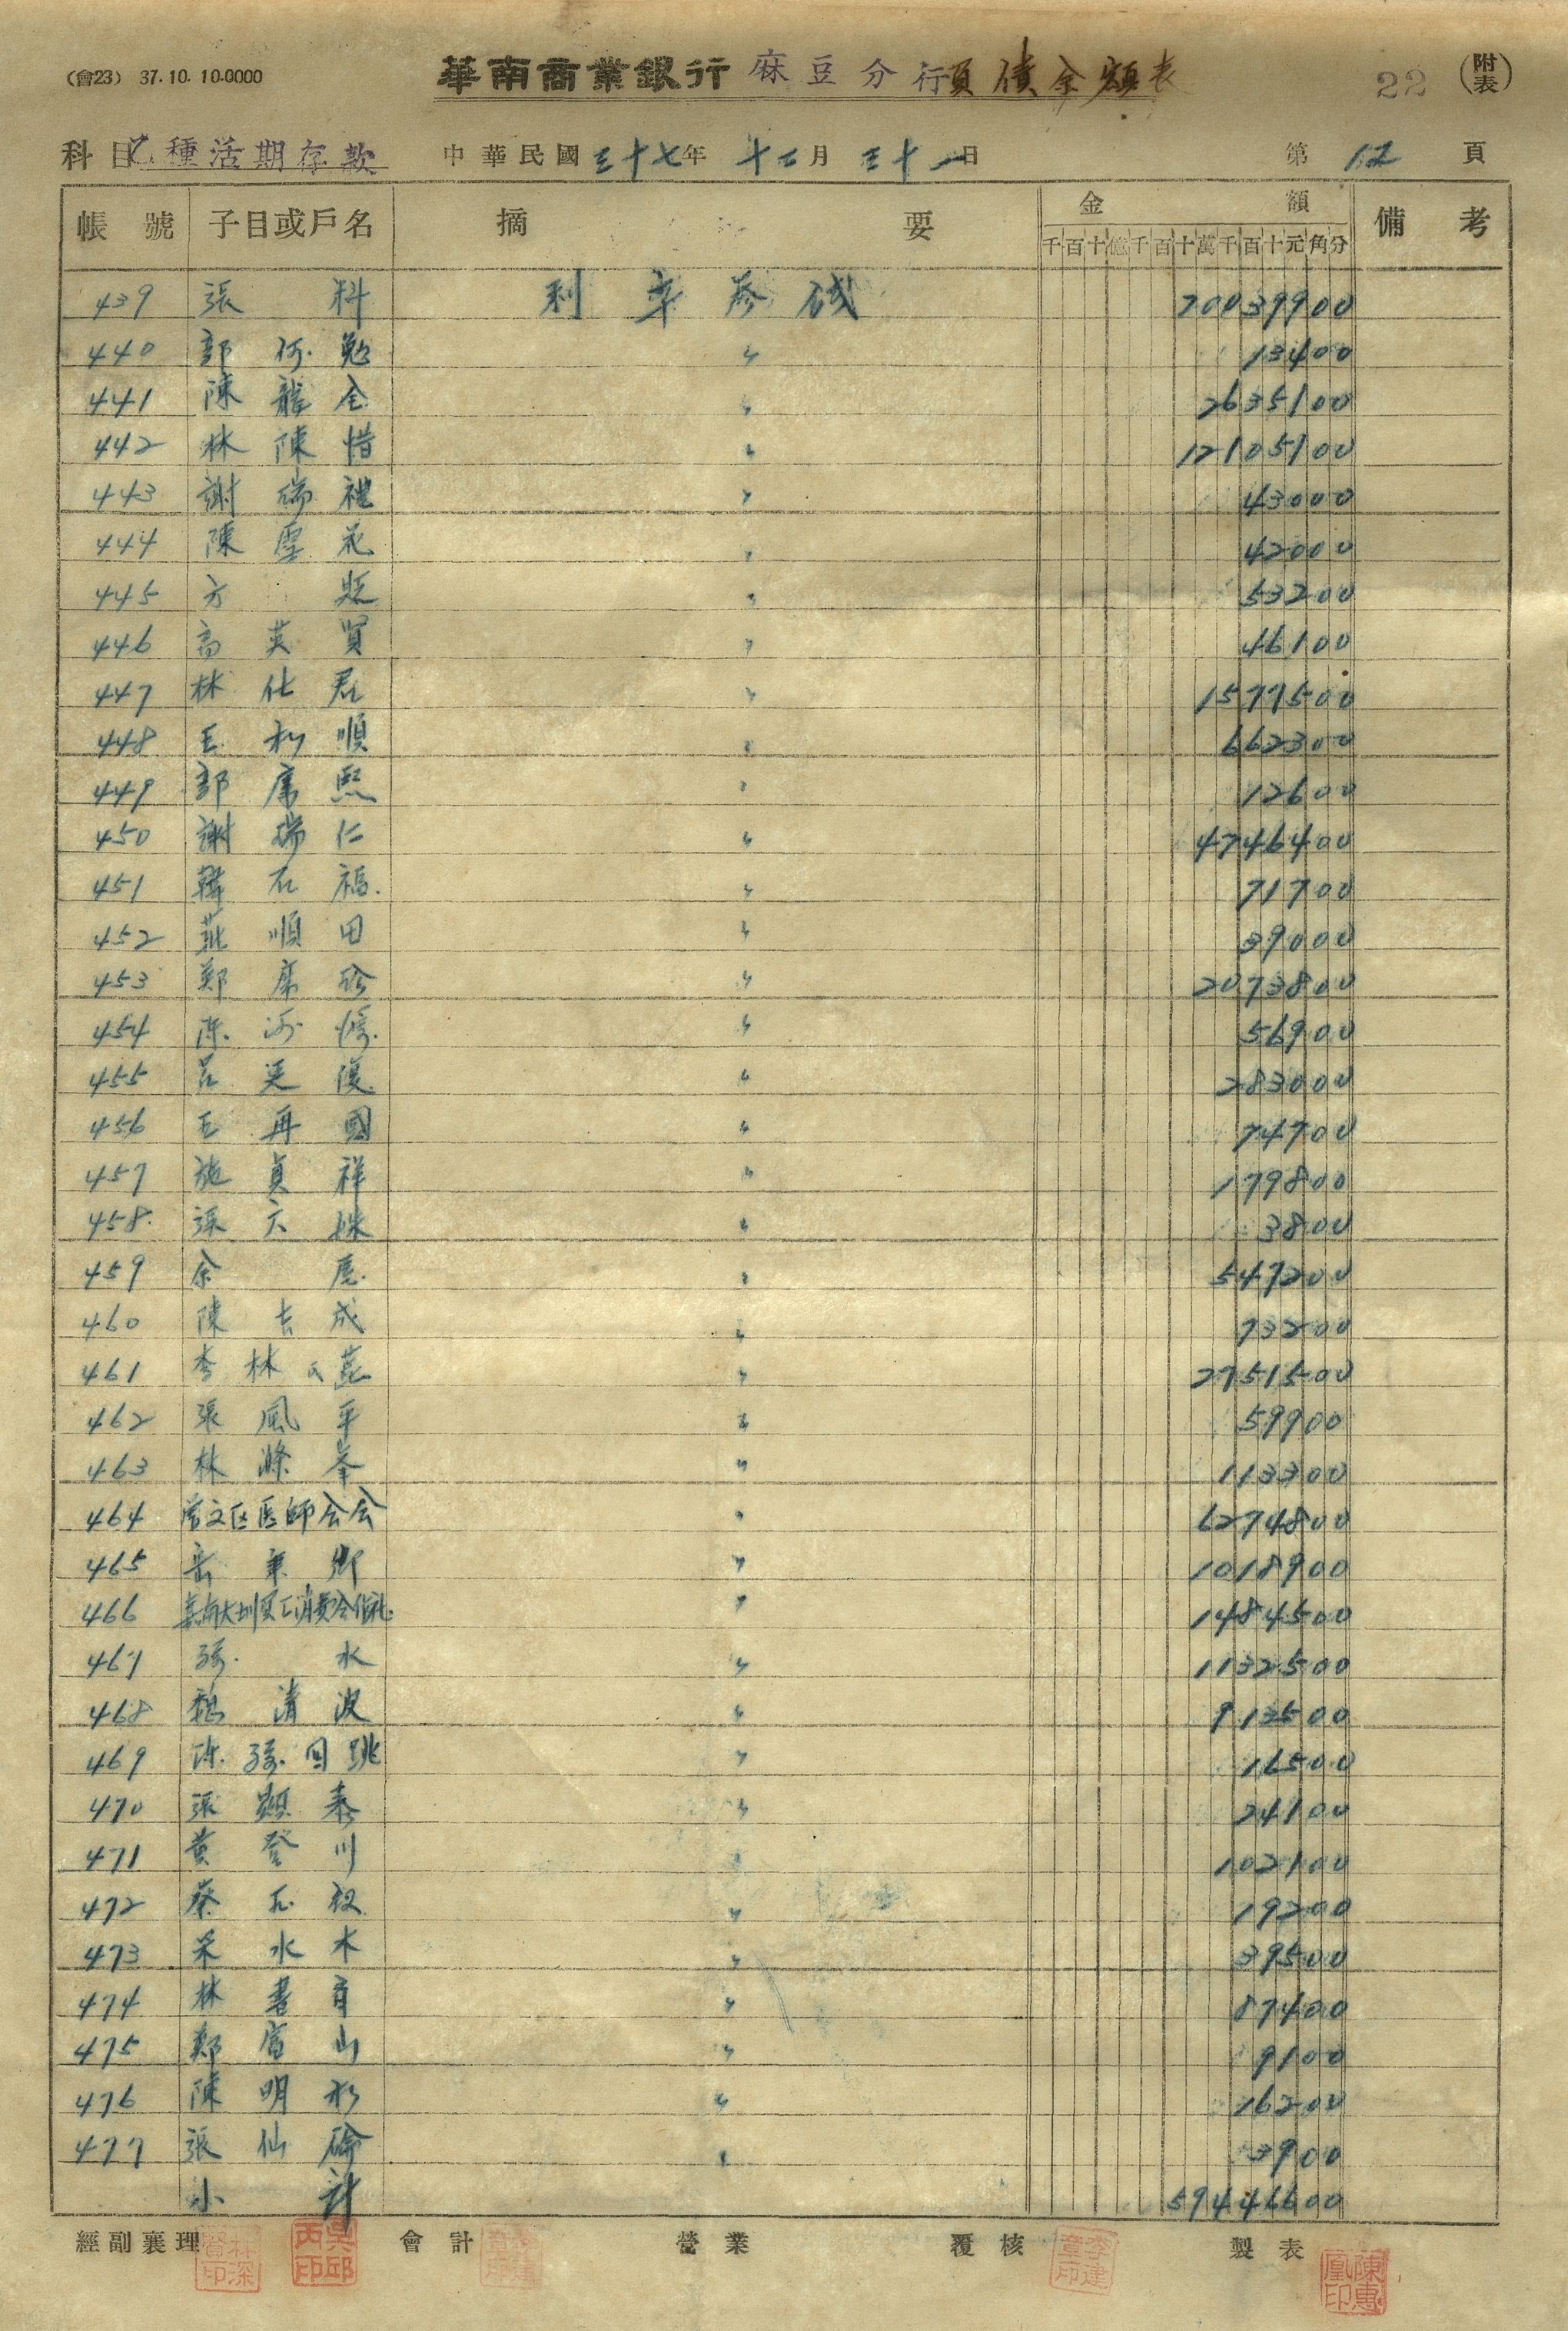 (會23) 37.10.10.0000
華南商業銀行 麻豆分行負債余額表
22 (附表)
科目 乙種活期存款 中華民國三十七年 十二月 三十一日 第 12 頁
帳號 子目或戶名 摘要 金額 備考
千百十億千百十萬千百十元角分
439 張 科 利率參伐 70039900
440 郭 何 勉 〃 13400
441 陳 龍 全 〃 2635100
442 林 陳 惜 〃 12105100
443 謝 瑞 禮 〃 43000
444 陳 雪 花 〃 42000
445 方 〃 53200
446 高 英 賢 〃 46100
447 林 仕 君 〃 1577500
448 王 順 〃 662300
449 郭 席 熙 〃 12600
450 謝 瑞 仁 〃 4746400
451 韓 石 福 〃 71700
452 順 田 〃 39000
453 鄭 席 珍 〃 2073800
454 陳 〃 56900
455 呂 復 〃 283000
456 王 再 國 〃 74700
457 施 貞 祥 〃 179800
458 張 六 姝 〃 3800
459 余 〃 547200
460 陳 吉 成 〃 73200
461 李 林 氏 〃 2751500
462 張 風 平 〃 59900
463 林 滌 峯 〃 113300
464 曾文区医師公会 〃 6274800
465 〃 1018900
466 嘉南大圳員工消費合作社 〃 1484500
467 水 〃 1132500
468 魏 清 波 〃 913500
469 陳 〃 16500
470 張 顯 泰 〃 24100
471 黃 登 川 〃 102100
472 蔡 〃 19200
473 水 木 〃 39500
474 林 書 〃 87400
475 鄭 富 山 〃 9100
476 陳 明 〃 16200
477 張 仙 〃 3900
小計 59446600
經副襄理 會計 營業 覆核 製表
吳邱丙印
李建章印
陳惠凰印